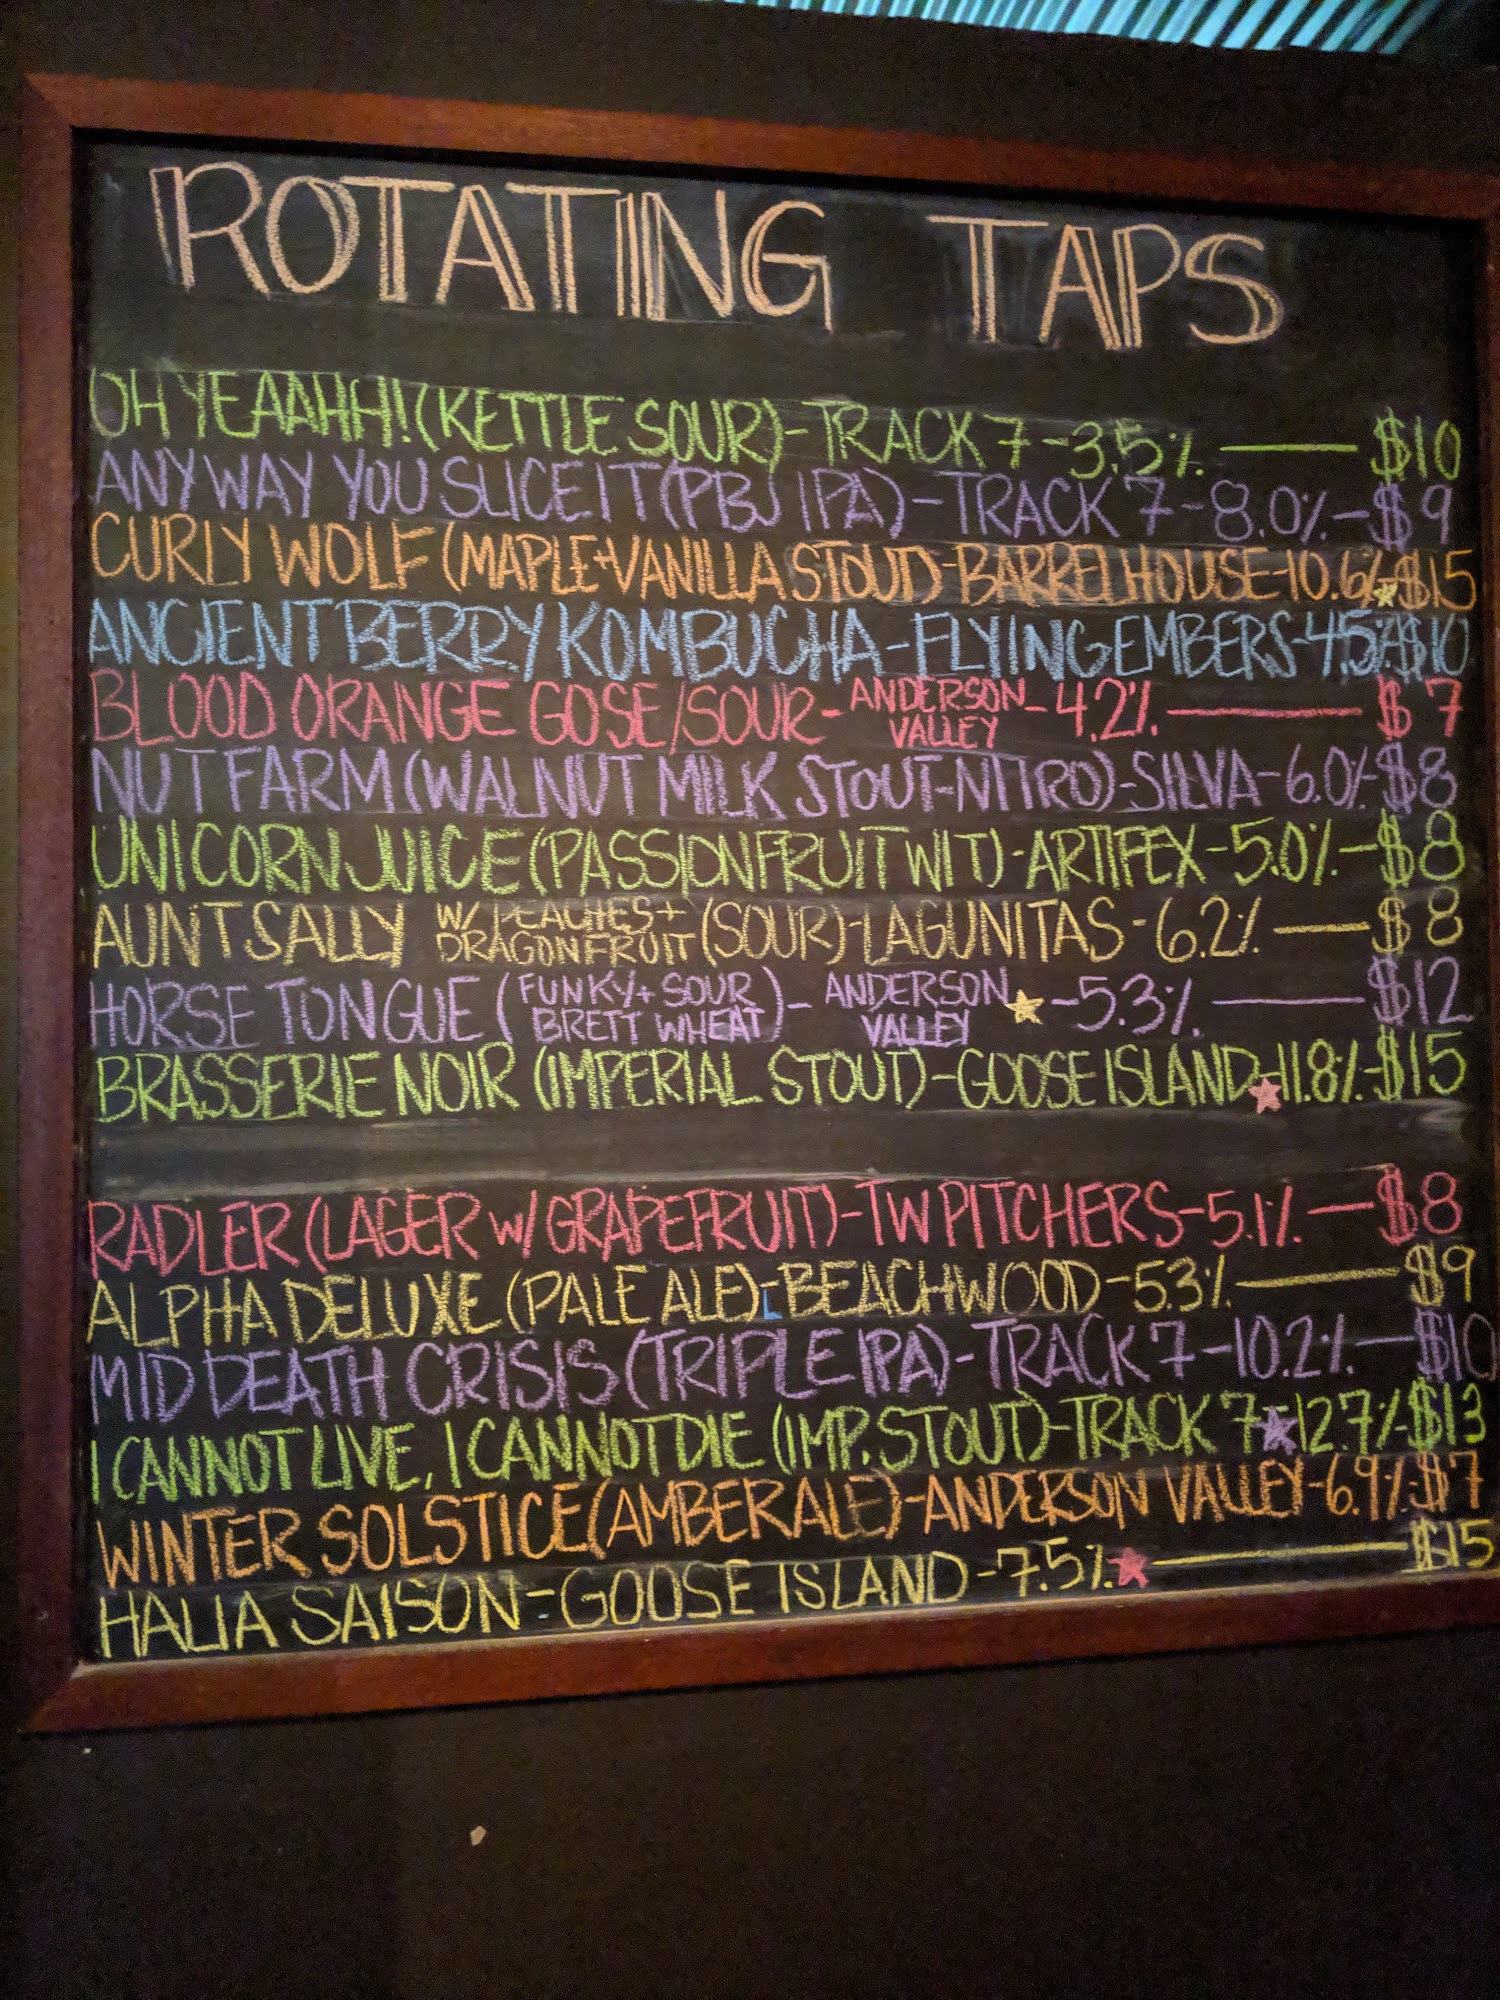 ROTATING TAPS
OH YEAAHH! (KETTLE SOUR) - TRACK 7 - 3.5% — $10
ANY WAY YOU SLICE IT (PBJ IPA) - TRACK 7 - 8.0% - $9
CURLY WOLF (MAPLE+VANILLA STOUT) - BARRELHOUSE - 10.6% - $15
ANCIENT BERRY KOMBUCHA - FLYING EMBERS - 4.5% $10
BLOOD ORANGE GOSE/SOUR - ANDERSON VALLEY - 4.2% — $7
NUT FARM (WALNUT MILK STOUT-NITRO) - SILVA - 6.0% - $8
UNICORN JUICE (PASSIONFRUIT WIT) - ARTIFEX - 5.0% - $8
AUNT SALLY W/ PEACHES + DRAGONFRUIT (SOUR) - LAGUNITAS - 6.2% — $8
HORSE TONGUE (FUNKY + SOUR BRETT WHEAT) - ANDERSON VALLEY ★ - 5.3% — $12
BRASSERIE NOIR (IMPERIAL STOUT) - GOOSE ISLAND - ★ 11.8% - $15
RADLER (LAGER W/ GRAPEFRUIT) - TW PITCHERS - 5.1% — $8
ALPHA DELUXE (PALE ALE) - BEACHWOOD - 5.3% — $9
MID DEATH CRISIS (TRIPLE IPA) - TRACK 7 - 10.2% — $10
I CANNOT LIVE, I CANNOT DIE (IMP. STOUT) - TRACK 7 ★ 12.7% - $13
WINTER SOLSTICE (AMBER ALE) - ANDERSON VALLEY - 6.9% - $7
HALIA SAISON - GOOSE ISLAND - 7.5% ★ — $15